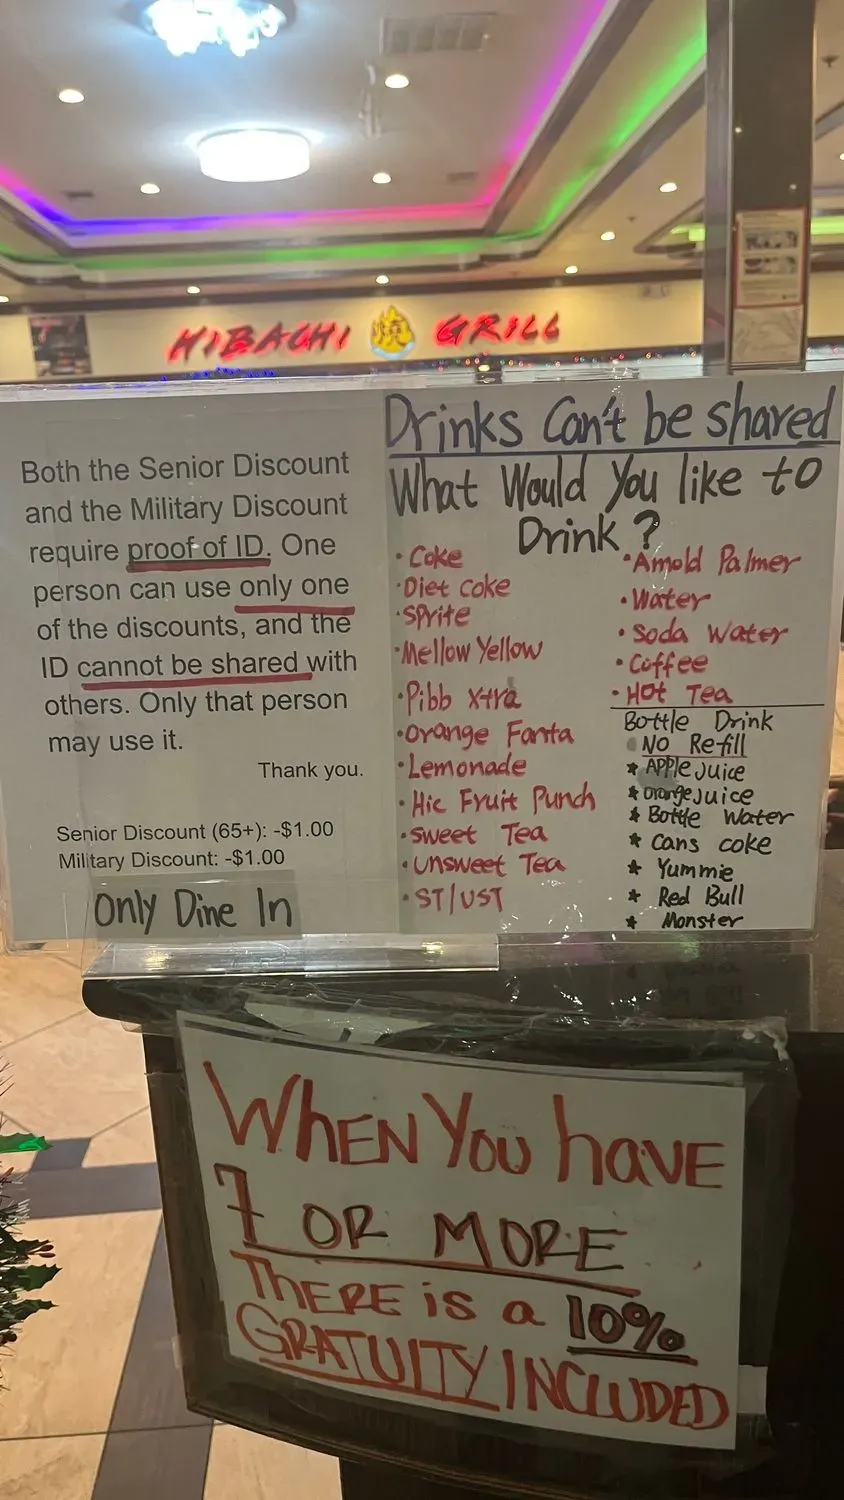 HIBACHI 燒 GRILL
Both the Senior Discount
and the Military Discount
require proof of ID. One
person can use only one
of the discounts, and the
ID cannot be shared with
others. Only that person
may use it.
Thank you.
Senior Discount (65+): -$1.00
Military Discount: -$1.00
Only Dine In
Drinks Can't be shared
What Would You like to
Drink?
· Coke
· Diet coke
· Sprite
· Mellow Yellow
· Pibb Xtra
· Orange Fanta
· Lemonade
· Hic Fruit Punch
· Sweet Tea
· Unsweet Tea
· ST/UST
· Arnold Palmer
· Water
· Soda Water
· Coffee
· Hot Tea
Bottle Drink
NO Refill
★ APPle Juice
★ orange Juice
★ Bottle Water
★ Cans coke
★ Yummie
★ Red Bull
★ Monster
WhEN You haVE
7 OR MORE
ThERE is a 10%
GRATUITY INCLUDED